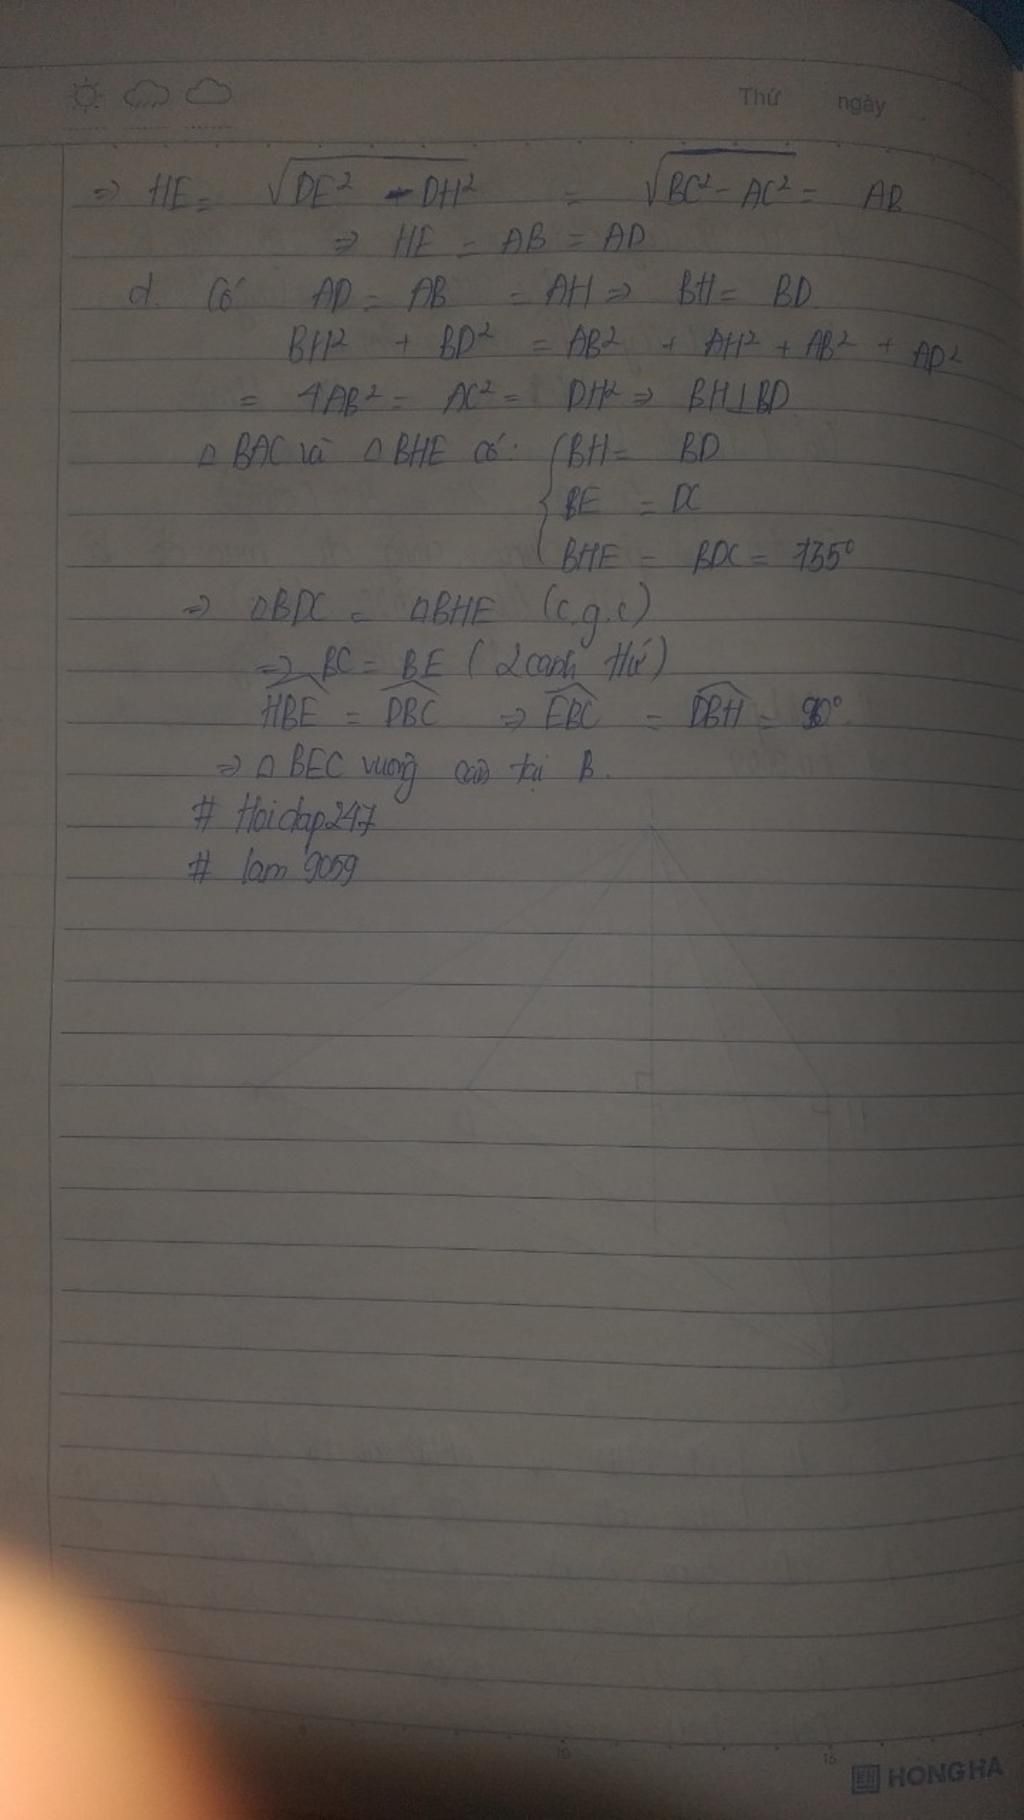 Thứ ngày
=> HE = √DE² - DH² = √BC² - AC² = AB
=> HE = AB = AD
d. Có AD = AB = AH => BH = BD
BH² + BD² = AB² + AH² + AB² + AD²
= 4AB² = AC² = DH² => BH⊥BD
△BAC và △BHE có: { BH = BD
BE = DC
BHE = BDC = 135°
=> △BDC = △BHE (c.g.c)
=> BC = BE (2 cạnh tứ)
HBE = DBC => EBC = DBH = 90°
=> △BEC vuông cân tại B.
# Hoidap247
# lam 9059
10 15
HONG HA